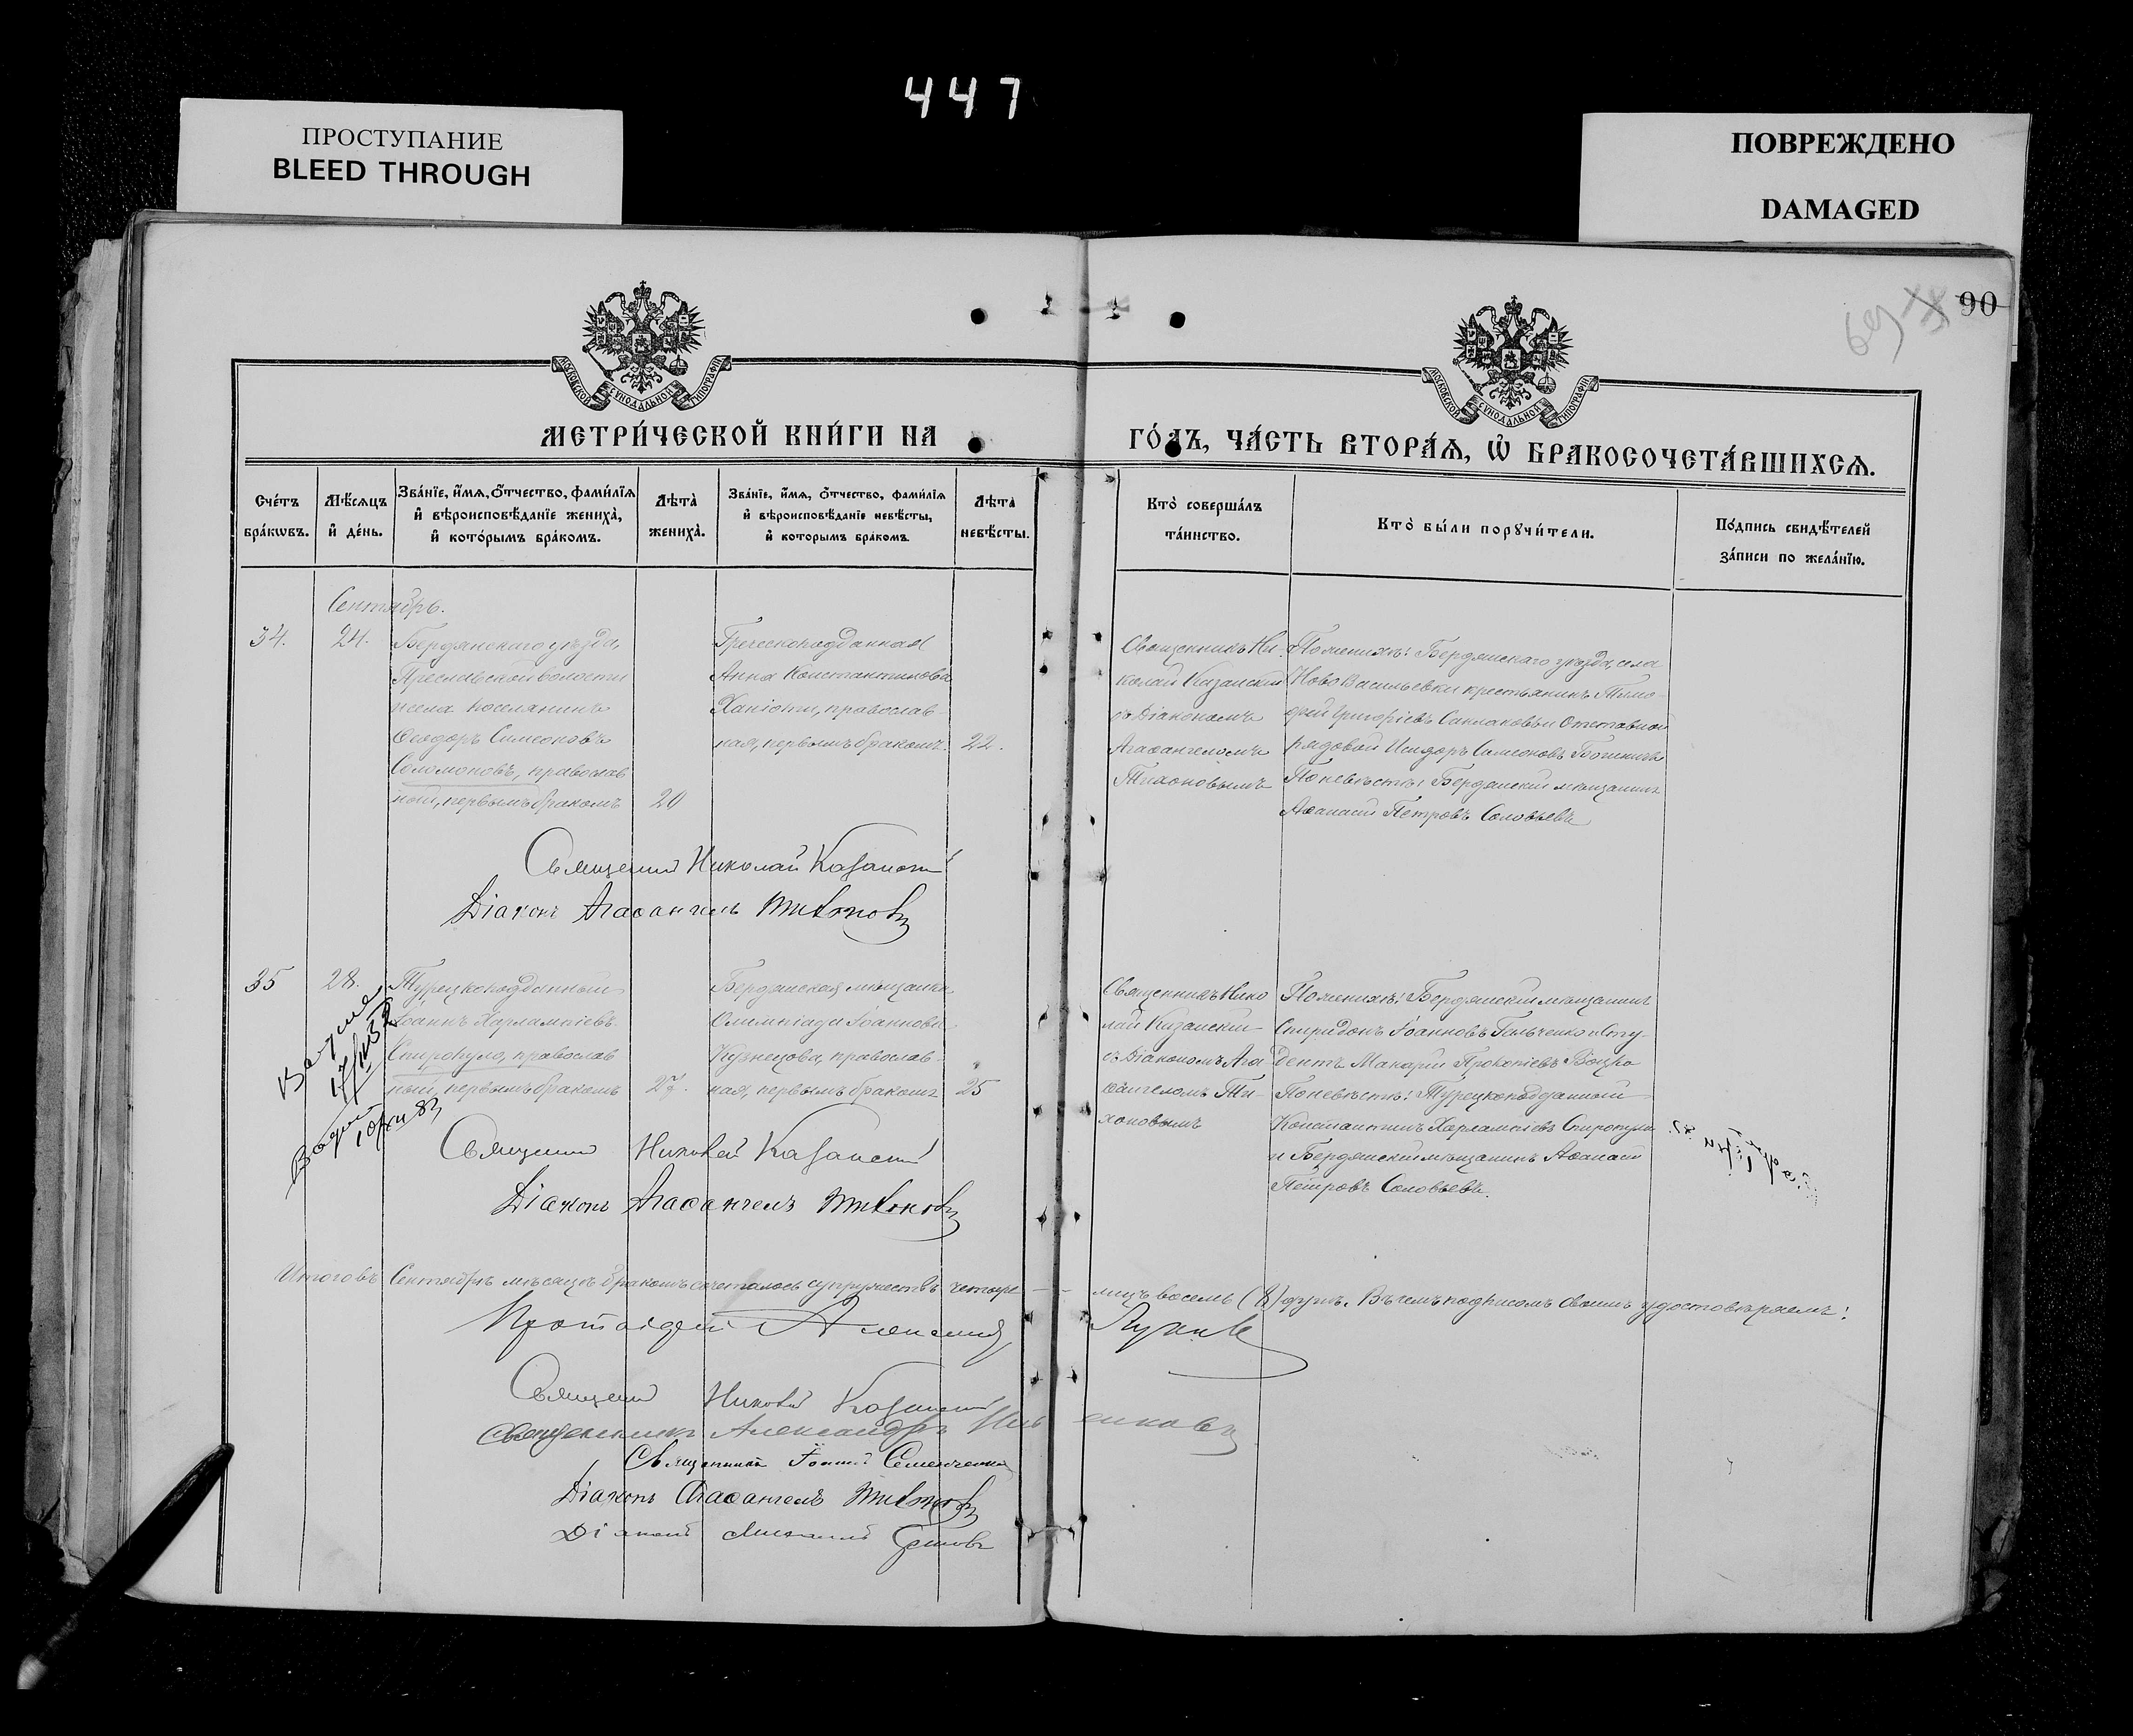 447
ПРОСТУПАНИЕ
BLEED THROUGH
ПОВРЕЖДЕНО
DAMAGED
69
90
МОСКОВСКОЙ СѴНОДАЛЬНОЙ ТИПОГРАФІИ
МОСКОВСКОЙ СѴНОДАЛЬНОЙ ТИПОГРАФІИ
МЕТРИ́ЧЕСКОЙ КНИ́ГИ НА
ГО́ДЪ, ЧА́СТЬ ВТОРА́Ѧ, Ѡ҆ БРАКОСОЧЕТА́ВШИХСѦ.
Сче́тъ
бра́кѡвъ.
Мѣ́сѧцъ
и҆ де́нь.
Зва́нїе, и҆́мѧ, ѻ҆́тчество, фами́лїѧ
и҆ вѣроисповѣ́данїе жениха̀,
и҆ кото́рымъ бра́комъ.
Лѣта̀
жениха̀.
Зва́нїе, и҆́мѧ, ѻ҆́тчество, фами́лїѧ
и҆ вѣроисповѣ́данїе невѣ́сты,
и҆ которымъ бра́комъ.
Лѣта̀
невѣ́сты.
Кто̀ соверша́лъ
та́инство.
Кто̀ бы́ли порꙋчи́тели.
По́дпись свидѣ́телей
за́писи по жела́нїю.
Сентябрь.
34.
24.
Бердянскаго уѣзда,
Преславской волости
и села поселянинъ
Ѳеодоръ Симеоновъ
Соломоновъ, православ
ный, первымъ бракомъ
20
Греческоподданная
Анна Константинова
Ханіоти, православ
ная, первымъ бракомъ.
22.
Священникъ Ни-
колай Казанскій
съ Діакономъ
Агаѳангеломъ
Тихоновымъ
По женихѣ: Бердянскаго уѣзда, села
Ново Васильевки крестьянинъ Тимо-
фей Григоріевъ и Отставной
рядовой Исидоръ Симеоновъ
По невѣстѣ: Бердянскій мѣщанинъ
Аѳанасій Петровъ Соловьевъ
Священникъ Николай Казанскій
Діаконъ Агаѳангелъ Тихоновъ
35
28.
Турецкоподданный
Іоаннъ Харлампіевъ
Спиропуло, православ
ный, первымъ бракомъ
27.
Бердянская мѣщанка
Олимпіада Іоаннова
Кузнецова, православ-
ная, первымъ бракомъ
25
Священникъ Нико
лай Казанскій
съ Діакономъ Ага
ѳангеломъ Ти-
хоновымъ
По женихѣ: Бердянскій мѣщанинъ
Спиридонъ Іоанновъ Гальченко и Сту-
дентъ Макарій Прокопіевъ
По невѣстѣ: Турецкоподданный
Константинъ Харлампіевъ Спиропуло
и Бердянскій мѣщанинъ Аѳанасій
Петровъ Соловьевъ.
Священникъ Николай Казанскій
Діаконъ Агаѳангелъ Тихоновъ
Итого въ Сентябрѣ мѣсяцѣ бракомъ сочеталось супружествъ четыре — лицъ восемь (8) душъ. Въ чемъ подписомъ своимъ удостовѣряемъ:
Протоіерей Алексій
Священникъ Николай Казанскій
Священникъ Александръ
Священникъ Іоаннъ Семенченко
Діаконъ Агаѳангелъ Тихоновъ
Діаконъ Михаилъ